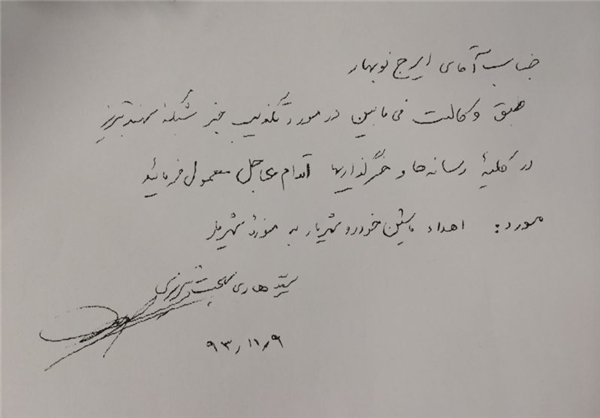 جناب آقای ایرج نوبهار
طبق وکالت فی مابین در مورد تکذیب خبر شبکه سهند تبریز
در کلیهٔ رسانه ها و خبرگذاریها اقدام عاجل معمول فرمائید
مورد: اهداء ماشین خودرو شهریار به موزه شهریار
سید هادی بهجت تبریزی
۹۳/۱۱/۹